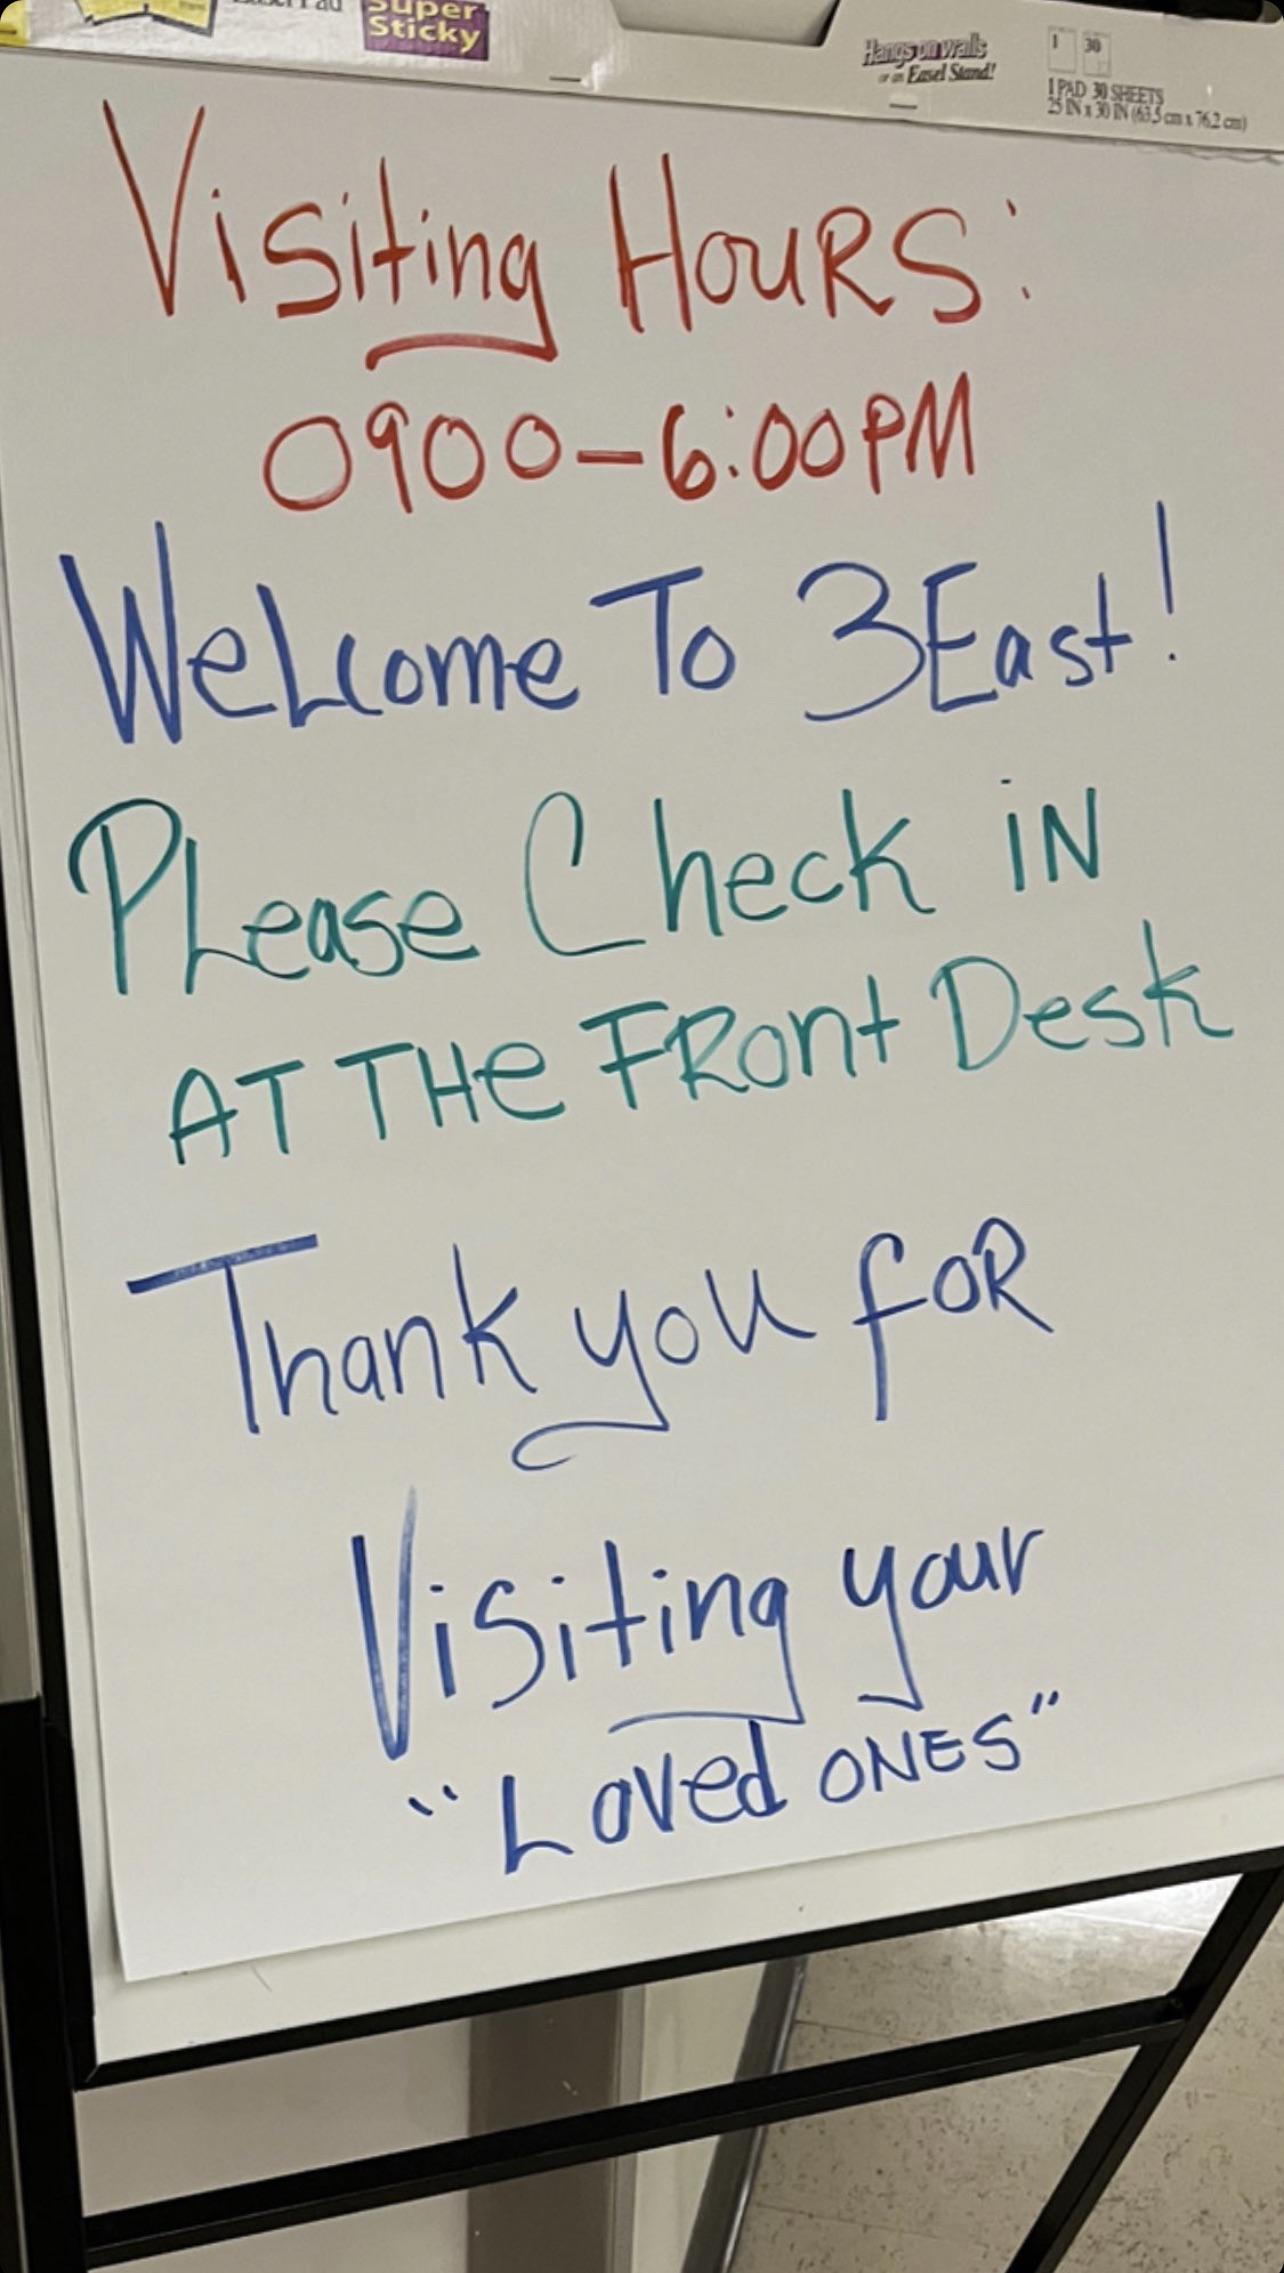 Super
Sticky
Hangs on walls
or an Easel Stand!
1 30
1 PAD 30 SHEETS
25 IN x 30 IN (63,5 cm x 76,2 cm)
Visiting HouRS:
0900-6:00PM
WeLcome To 3East!
PLease Check iN
AT THe FRont Desk
Thank you foR
Visiting your
"Loved ONES"